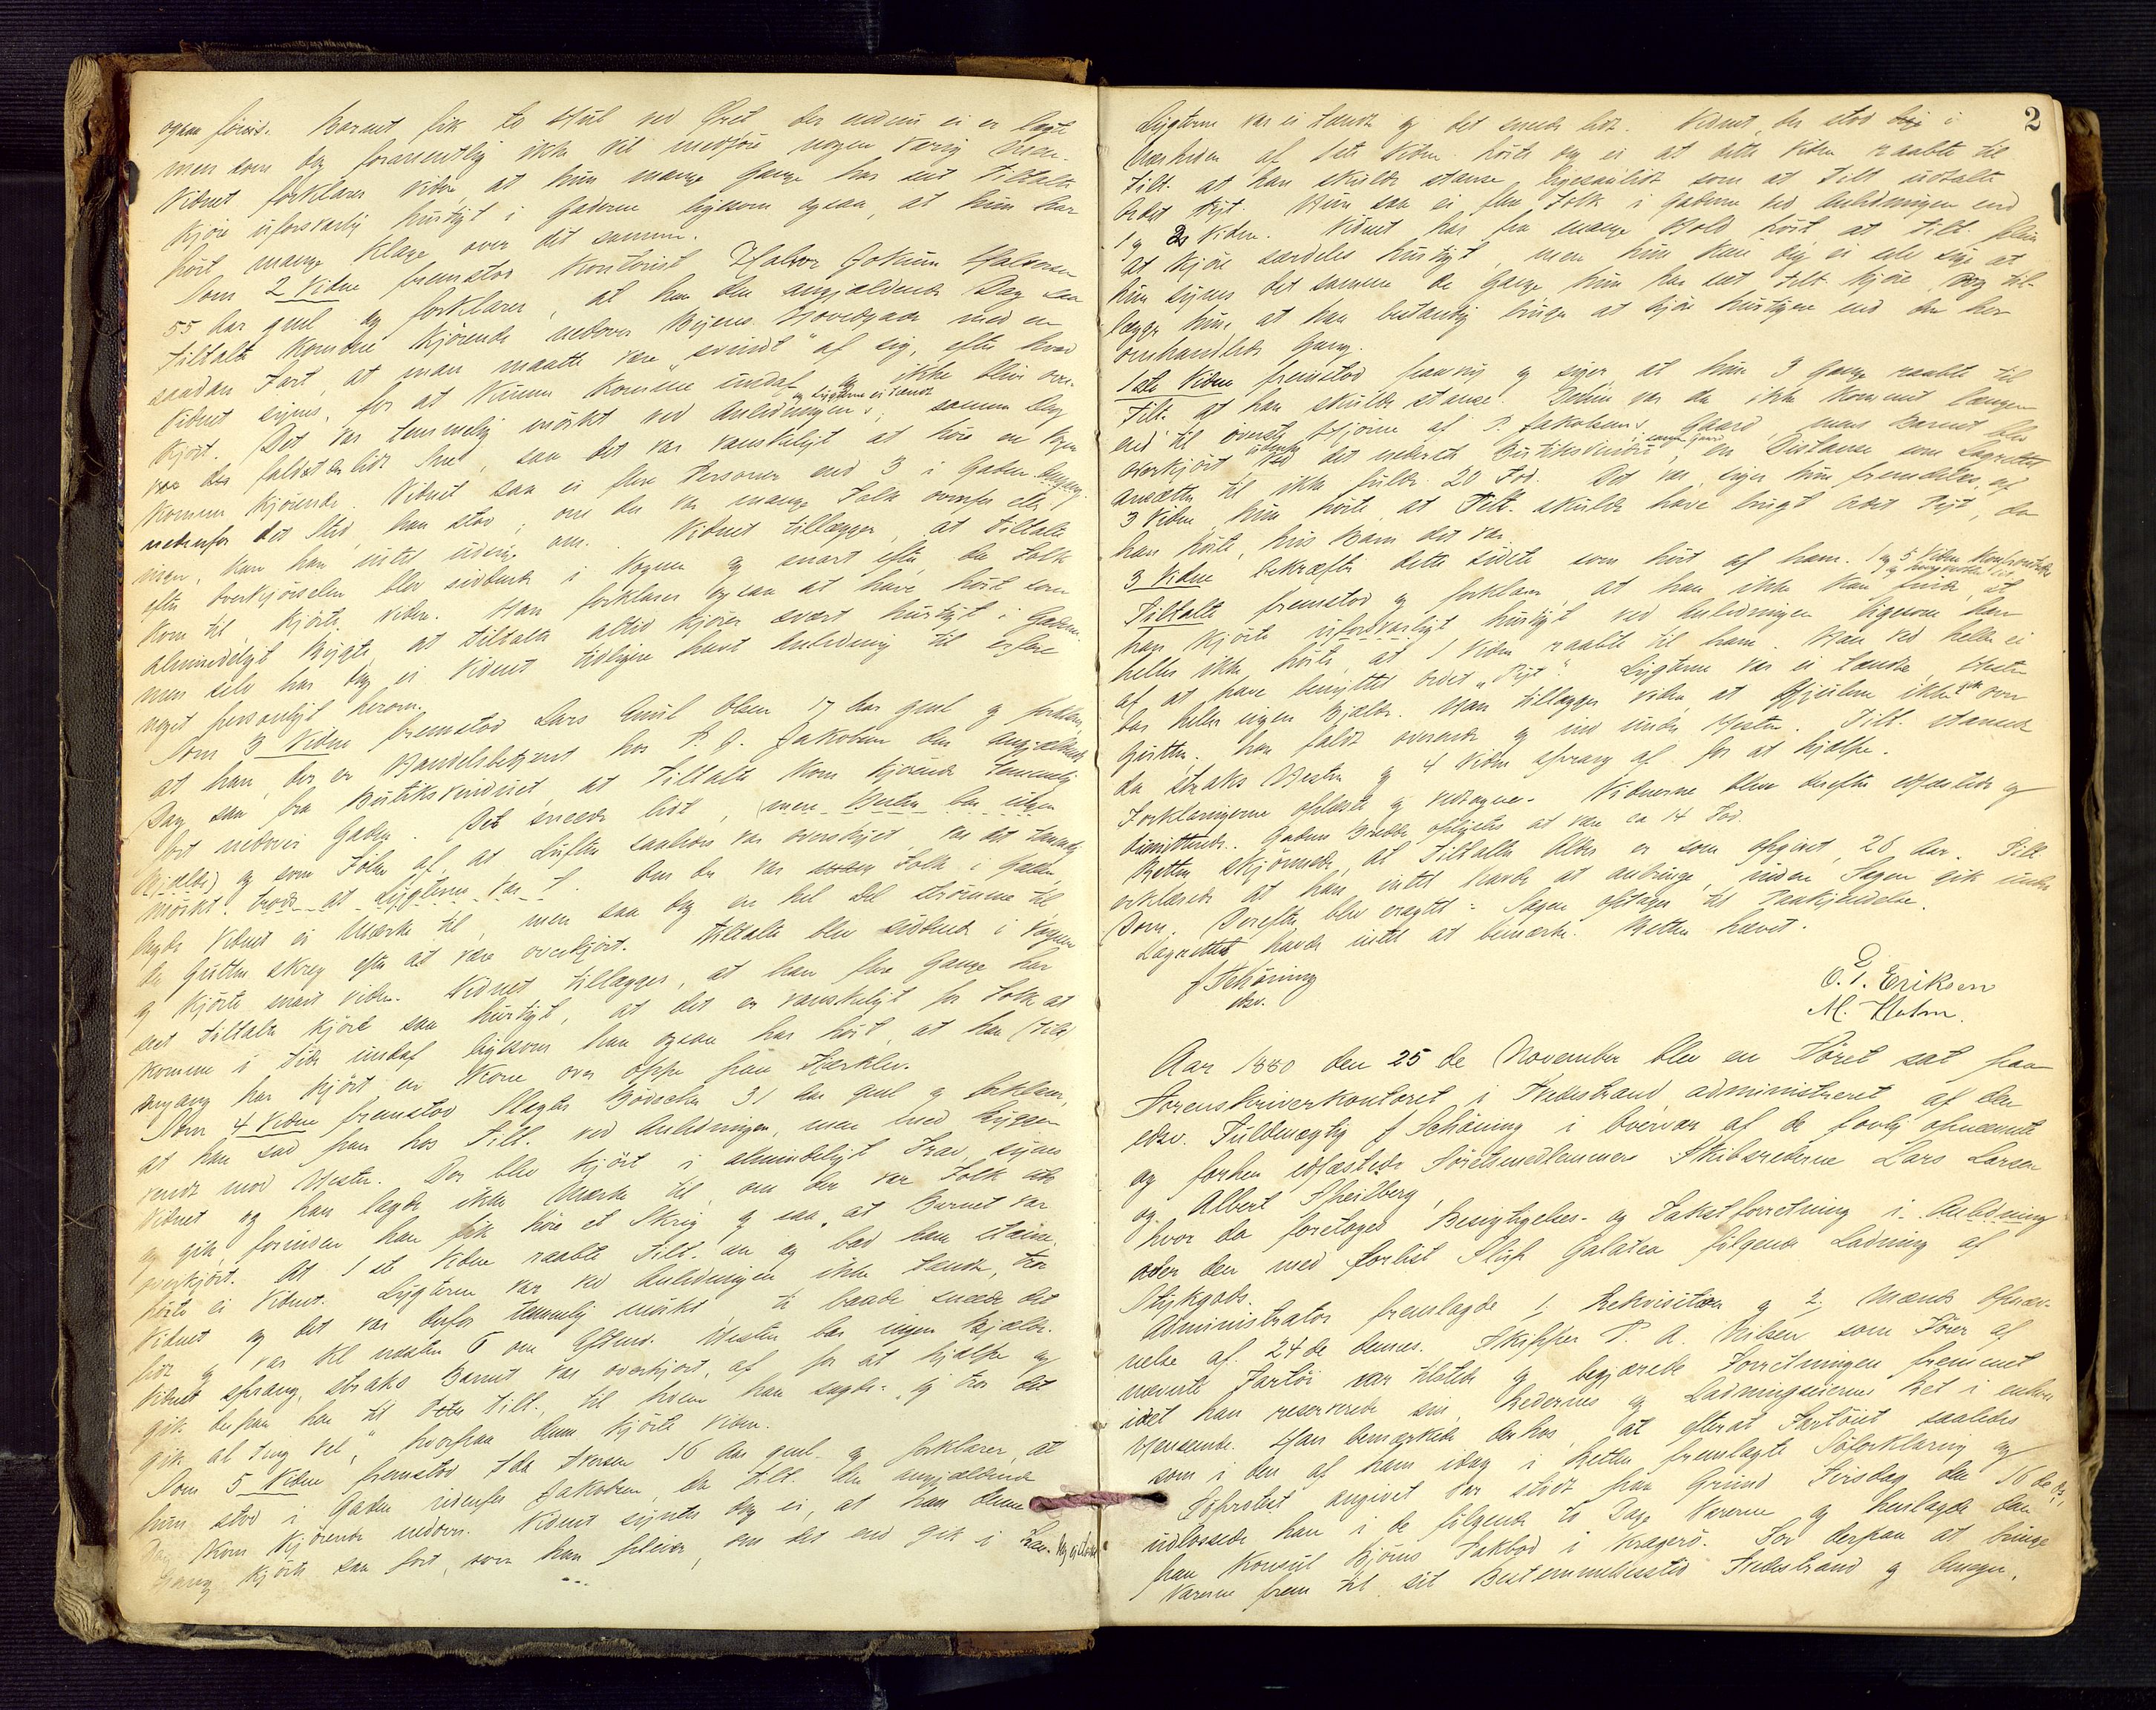 ogsaa förvist. Barnet fik to Hül ved Öret der endnu ei er lægte
men som dog forarsentlig ikke vil medföre nogen varig Men.
Vidnet forklarer viden, at hün mange Gange har seet Tiltalte
kjöre üforsvarlig hürtigt i Gaderne ligesom ogsaa, at hün har
hört mange klage over det samme.
Som 2 Vidne fremstod Kontorist Halvor Jokum Halvorsen
55 Aar gml og forklarer, at han den angjældende Dag saa
Tiltalte komme kjörende nedover Byens Hovedgade med en
saadan Fart, at man maatte være "svindt" af sig, efter hvad
Vidnet synes, for at künne komme ündaf og ikke blive over-
og Lygterne ei tændt
kjört. Det var temmelig mörkt ved Anledningen, samme Dag
var der faldet lidt Sne, saa det var vanskeligt at höre en Vogn
komme kjörende. Vidnet saa ei flere Personer end 3 i Gaden
nedenfor det Sted, han stod; om der var mange Folk ovenfor eller
kan han intet üdsige om. Vidnet tillægger, at Tiltalte
efter Overkjörselen blev siddende i Vognen og snart efter, da Folk
kom til, kjörte viden. Han forklarer ogsaa at have hört som
almindeligt Rygte at Tiltalte altid kjörer svært hürtigt i Gaden
men selv har dog ei Vidnet tidligere havt Anledning til erfare
noget personligt herom.
Som 3 Vidne fremstod Lars Emil Olsen 17 Aar gml og forklarer,
at han, der er Handelsbetjent hos P. J. Jakobsen den angjældende
Dag saa fra Bütiksvindüet, at Tiltalte kom kjörende temmelig
fort nedover Gaden. Det sneede lidt, (men Hesten bar ingen
Bjælde) og som Fölge af, at Lüften saaledes var overskyet, var det temmelig
mörkt. trods at Lygterne var t. Om der var Folk i Gaden
lagde Vidnet ei Mærke til, men saa dog en hel Del strömme til
da Gütten skreg efter at være overkjört. Tiltalte blev siddende i Vognen
og kjörte snart viden. Vidnet tillægger, at han flere Gange har
seet Tiltalte kjöre saa hürtigt, at det er vanskeligt for Folk at
komme i Tide ündaf ligesom han ogsaa har hört, at han (Tilt)
engang har kjört en Kone over oppe paa Hærklev.
Som 4 Vidne fremstod Slagter Bödecker 31 Aar gml og forklarer,
at han sad paa hos Tilt. ved Anledningen, men med Ryggen
vendt mod Hesten. Der blev kjört i almindeligt Trav, synes
Vidnet og han lagde ikke Mærke til, om der var Folk
og gik, forinden han fik höre et Skrig og saa, at Barnet var
overkjört. At 1 ste Vidne raabte Tilt. an og bad ham standse,
hörte ei Vidnet. Lygterne var ved Anledningen ikke tændte, tror
Vidnet og det var derfor temmelig mörkt, ti baade sneede det
lidt og var Kl næsten 6 om Efterm. Hesten bar ingen Bjælde.
Vidnet sprang, straks Barnet var overkjört, af for at hjælpe og
gik derpaa hen til Tilt., til hvem han sagde: "jeg tror det
gik al ting vel," hvorpaa denne kjörte viden.
Som 5 Vidne fremstod Ida Iversen 16 Aar gml. og forklarer, at
hün stod i Gaden nedenfor Jakobsen, da Tilt. den angjældende
Dag kom kjörende nedover. Vidnet syntes dog ei, at han denne
Gang kjörte saa fort, som han pleier, om det end gik i Trav.
2
Lygterne var ei tændt og det sneede lidt. Vidnet, der stod i
Nærheden af 1ste Vidne hörte dog ei at dette Vidne raabte til
Tilt. at han skülde standse, ligesaalidt som at Tilt üdtalte
Ordet Pyt. Hün saa ei flere Folk i Gaderne ved Anledningen end
1 og 2 Vidne. Vidnet har fra mange Hold hört at Tilt. pleier
at kjöre særdeles hürtigt, men hün kan dog ei selv sige at
hün synes det samme de Gange hün har seet Tilt. kjöre, dog til-
lægger hün, at han bestandig brüger at kjöre hürtigere end den her
omhandlede Gang.
1ste Vidne fremstod paany og siger at hün 3 Gange raabte til
Tilt. at han skülde standse. Denne var da ikke kommet længere
end til överste Hjörne af P. Jakobsens Gaard, mens Barnet blev
overkjört üdenfor det nederste Bütiksvindü i samme Gaard, en Distanse som Lagrettet
ansætter til ikke fülde 20 Fod. Det var, siger hün fremdeles, af
3 Vidne hün hörte, at Tilt. skülde have brügt Ordet Pyt, da
han hörte, hvis Barn det var.
3 Vidne bekræfter dette sidste som hört af ham. 1 og 5 Vidne konfronteredes
Tiltalte fremstod og forklarer, at han ikke kan finde, at
han kjörte üforsvarligt hürtigt ved Anledningen ligesom han
heller ikke hörte, at 1 Vidne raabte til ham. Han ved heller ei
af at have benyttet Ordet "Pyt". Lygterne var ei tændte. Hesten
bar heller ingen Bjælde. Han tillægger viden, at Hjülene ikke gik over
Gütten, han faldt overende og ind ünder Hesten. Tilt. standsede
da straks Hesten og 4 Vidne sprang af for at hjælpe.
Forklaringerne oplæste og vedtagne. Vidnerne bleve derefter edfæstede og
dimitterede. Gadens Bredde oplystes at være ca 14 Fod.
Retten skjönnede, at Tiltaltes Alder er som opgivet, 28 Aar. Tilt.
erklærede at han intet havde at anbringe, inden Sagen gik ünder
Dom. Derefter blev eragtet: Sagen optages til Paakjendelse.
Lagrettet havde intet at bemærke. Retten hævet.
J Schöning
edsv.
E. T. Eriksen
M. Holm.
Aar 1880 den 25 de November blev en Söret sat paa
Sorenskriverkontoret i Tvedestrand administreret af den
edsv. Füldmægtig J Schöning i Overvær af de forlig opnævnte
og forhen edfæstede Söretsmedlemmer Skibsrederne Lars Larsen
og Albert Sheilberg,
hvor da foretoges Besigtigelses- og Takstforretning i Anledning
over den med forlist Slüp Galatea fölgende Ladning af
Stykgods.
Administrator fremlagde 1. Rekvisition og 2. Mænds Opnæv-
nelse af 24 de dennes. Skipper P. A. Nilsen som Förer af
nævnte Fartöi var tilstede og begjærede Forretningen fremmet
idet han reserverede sin, Redernes og Ladningseiernes Ret i enhver
Henseende. Han bemærkede derhos, at efterat Fartöiet saaledes
som i den af ham idag i Retten fremlagte Söforklaring og
Söprotest angivet var stödt paa Gründ Tirsdag den 16 de ds,
üdlossede han i de fölgende to Dage Varerne og henlagde dem
paa Konsül Björns Pakbod i Kragerö. For derpaa at bringe
Varerne frem til sit Bestemmelsessted Tvedestrand og Omegn,